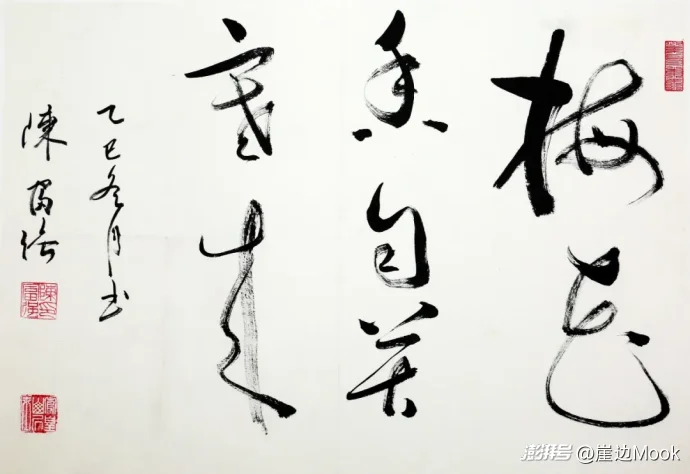 梅花
香自苦
寒来
乙巳冬月书
陳
澎湃号 @崖边Mook